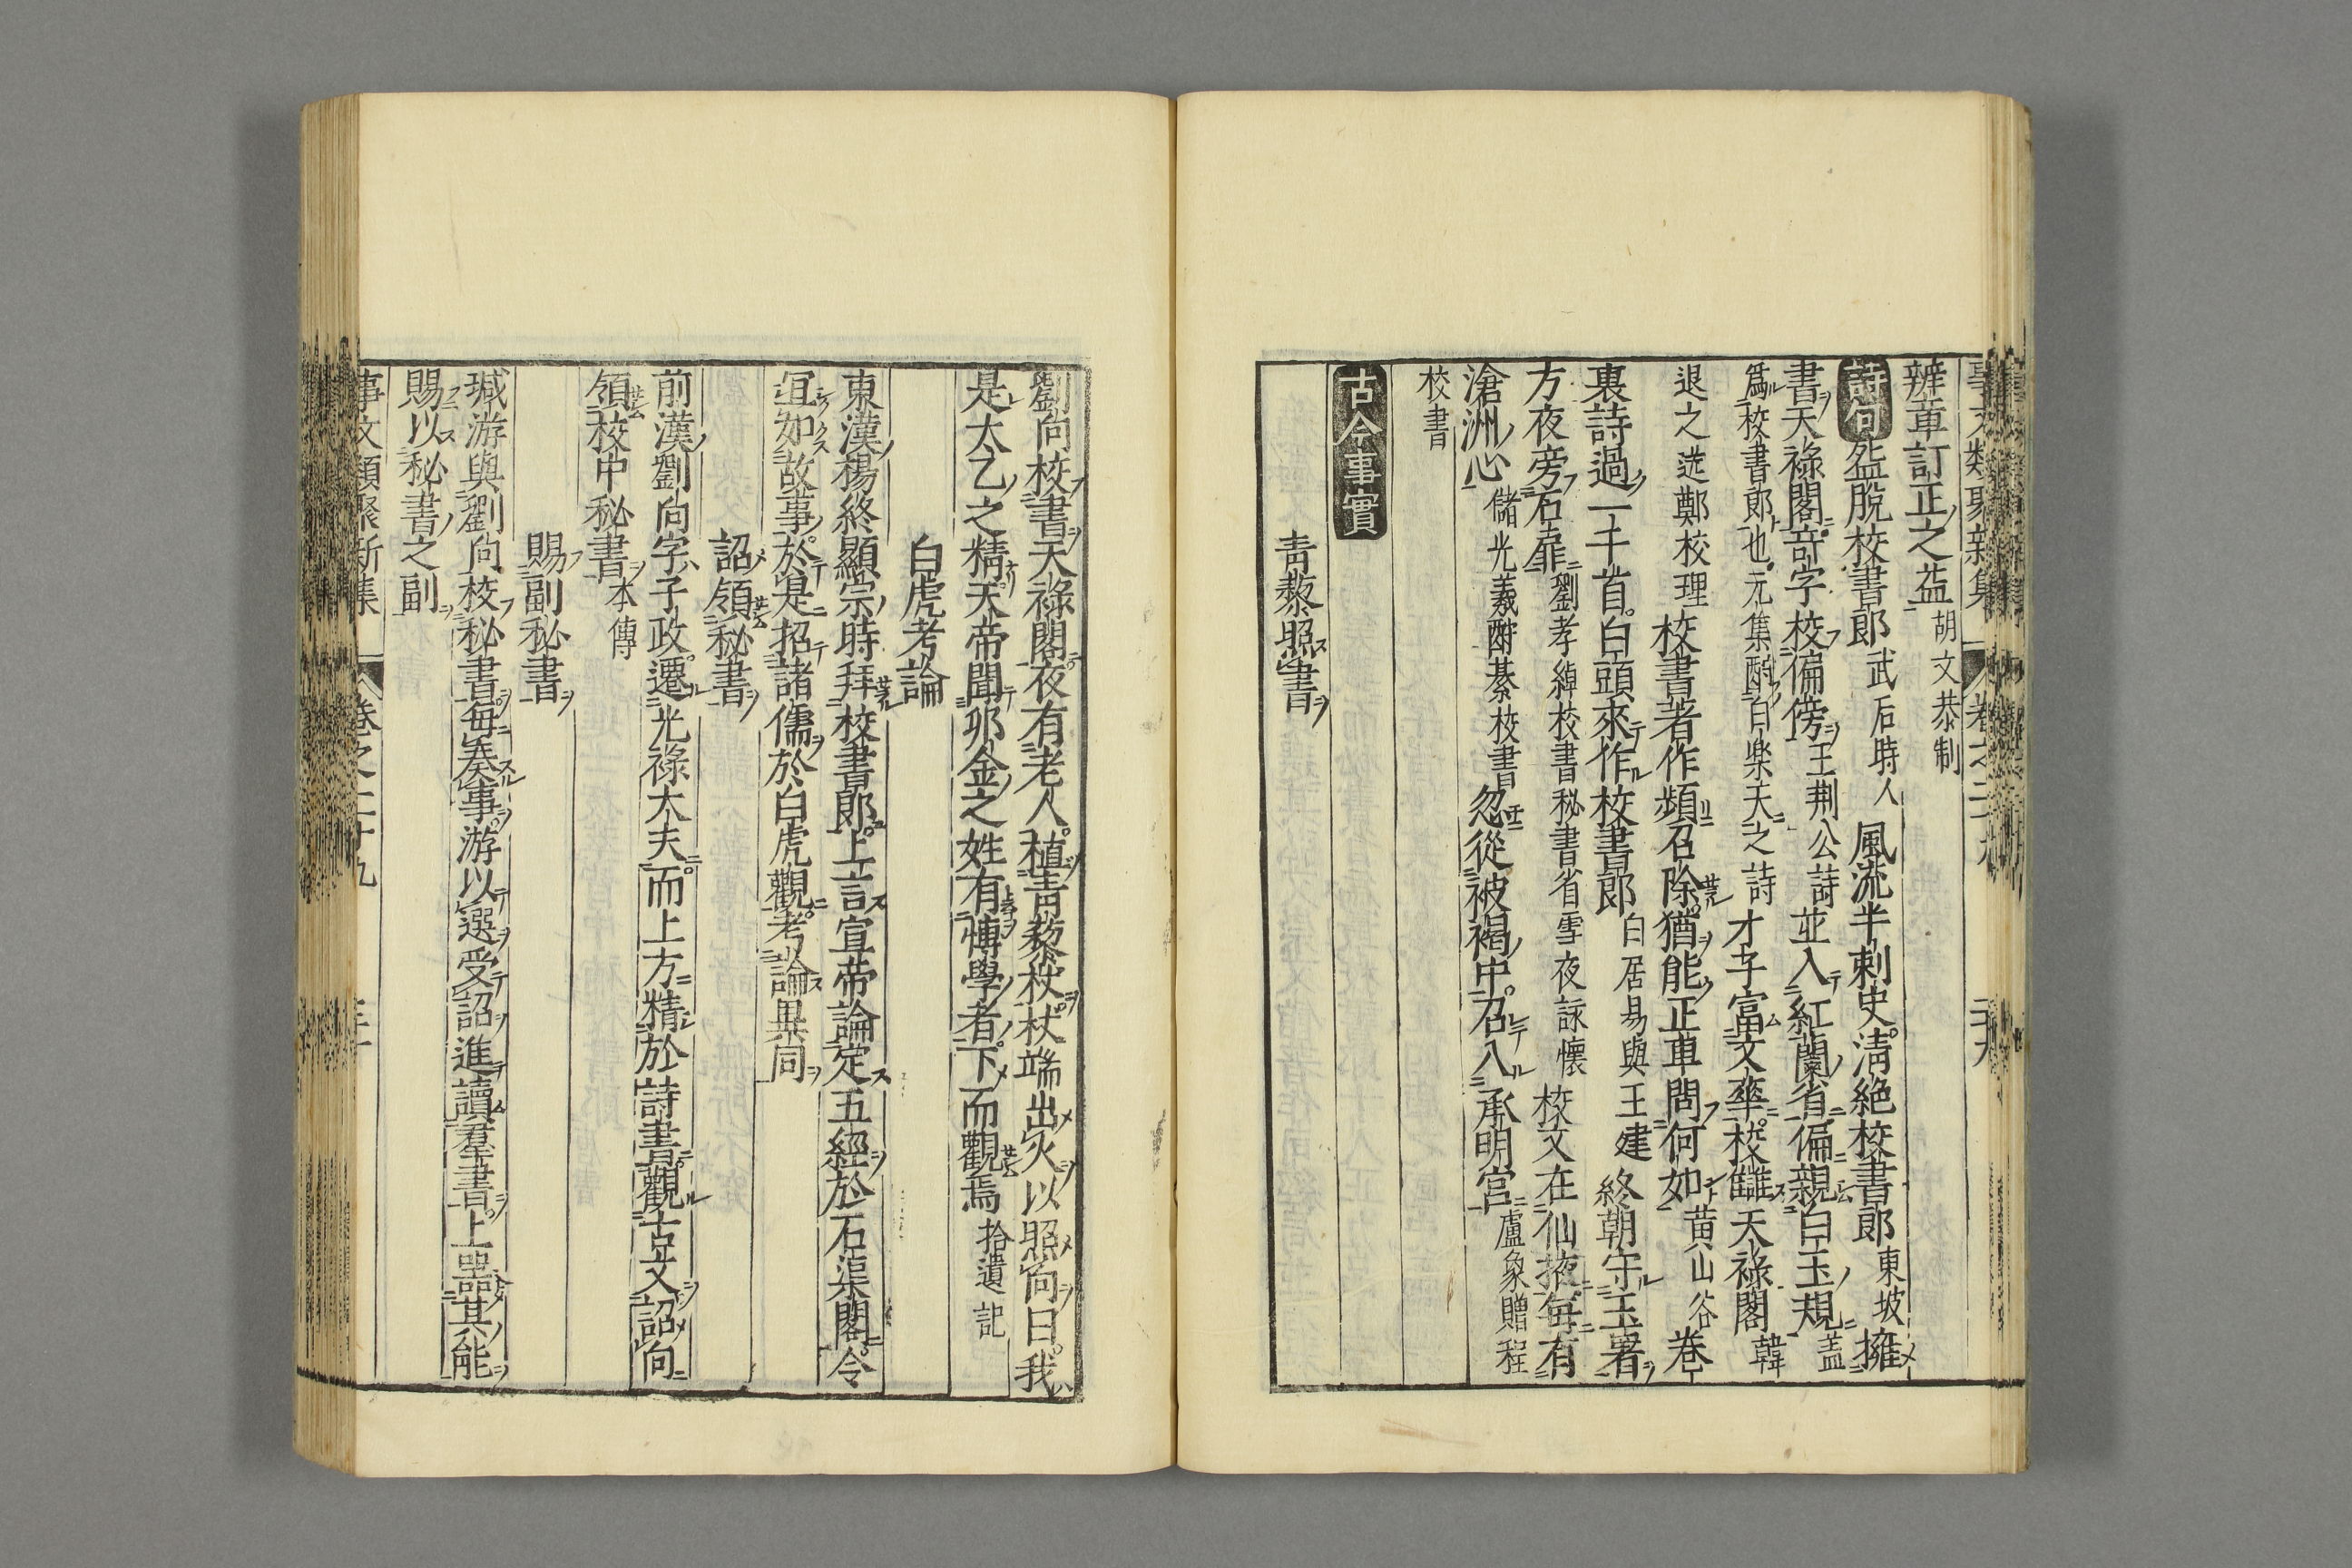 事文類聚新集 卷之二十九
辨章訂正之益 胡文恭制
詩句 盌脫校書郎 武后時人 風流半刺史清絶校書郎 東坡 擁
書天祿閣奇字校偏傍 王荆公詩 並入紅蘭省偏親白玉規 蓋
爲校書郎也元集酧白楽天之詩 才子富文華校讎天祿閣 韓
退之送鄭校理 校書著作頻召除猶能正車問何如 黄山谷 卷
裏詩過一千首白頭來作校書郎 白居易與王建 終朝守玉署
方夜旁石扉 劉孝綽校書秘書省雪夜詠懷 校文在仙掖每有
滄洲心 儲光羲酧綦校書 忽從被褐中召入承明宮 盧象贈程
校書
古今事實
青藜照書
劉向校書天祿閣夜有老人植青藜杖杖端出火以照向曰我
是太乙之精天帝聞卯金之姓有博學者下而觀焉 拾遺記
白虎考論
東漢楊終顯宗時拜校書郎上言宣帝論定五經於石渠閣令
宜如故事於是招諸儒於白虎觀考論異同
詔領秘書
前漢劉向字子政遷光祿大夫而上方精於詩書觀古文詔向
領校中秘書 本傳
賜副秘書
瑊游與劉向校秘書每奏事游以選受詔進讀羣書上器其能
賜以秘書之副
事文類聚新集 卷之二十九